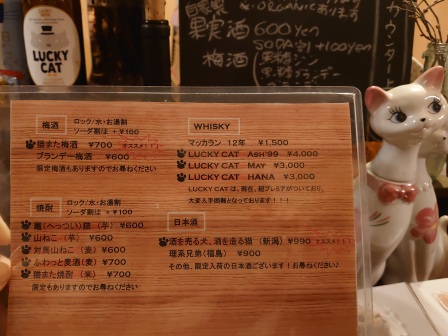 LUCKY
CAT
& ORGANICあります
果実酒 600yen
SODA割 +100yen
梅酒
カウンター
梅酒
ロック/水・お湯割
ソーダ割は + ¥100
猫また梅酒 ¥700 オススメ!!
ブランデー梅酒 ¥600
限定梅酒もありますのでお尋ねください
焼酎
ロック/水・お湯割
ソーダ割は + ¥100
竈(へっつい)猫 (芋) ¥600
山ねこ (芋) ¥600
対馬山ねこ (麦) ¥600
ふわっと麦酒 (麦) ¥700
猫また焼酎 (米) ¥700
限定もありますのでお尋ねください
WHISKY
マッカラン 12年 ¥1,500
LUCKY CAT ASH'99 ¥4,000
LUCKY CAT MAY ¥3,000
LUCKY CAT HANA ¥3,000
LUCKY CAT は、現在、超プレミアがついており、
大変入手困難となっております!!!
日本酒
酒を売る犬、酒を造る猫 (新潟) ¥990 オススメ!!
理系兄弟 (福島) ¥900
その他、限定入荷の日本酒ございます!お尋ねください♪